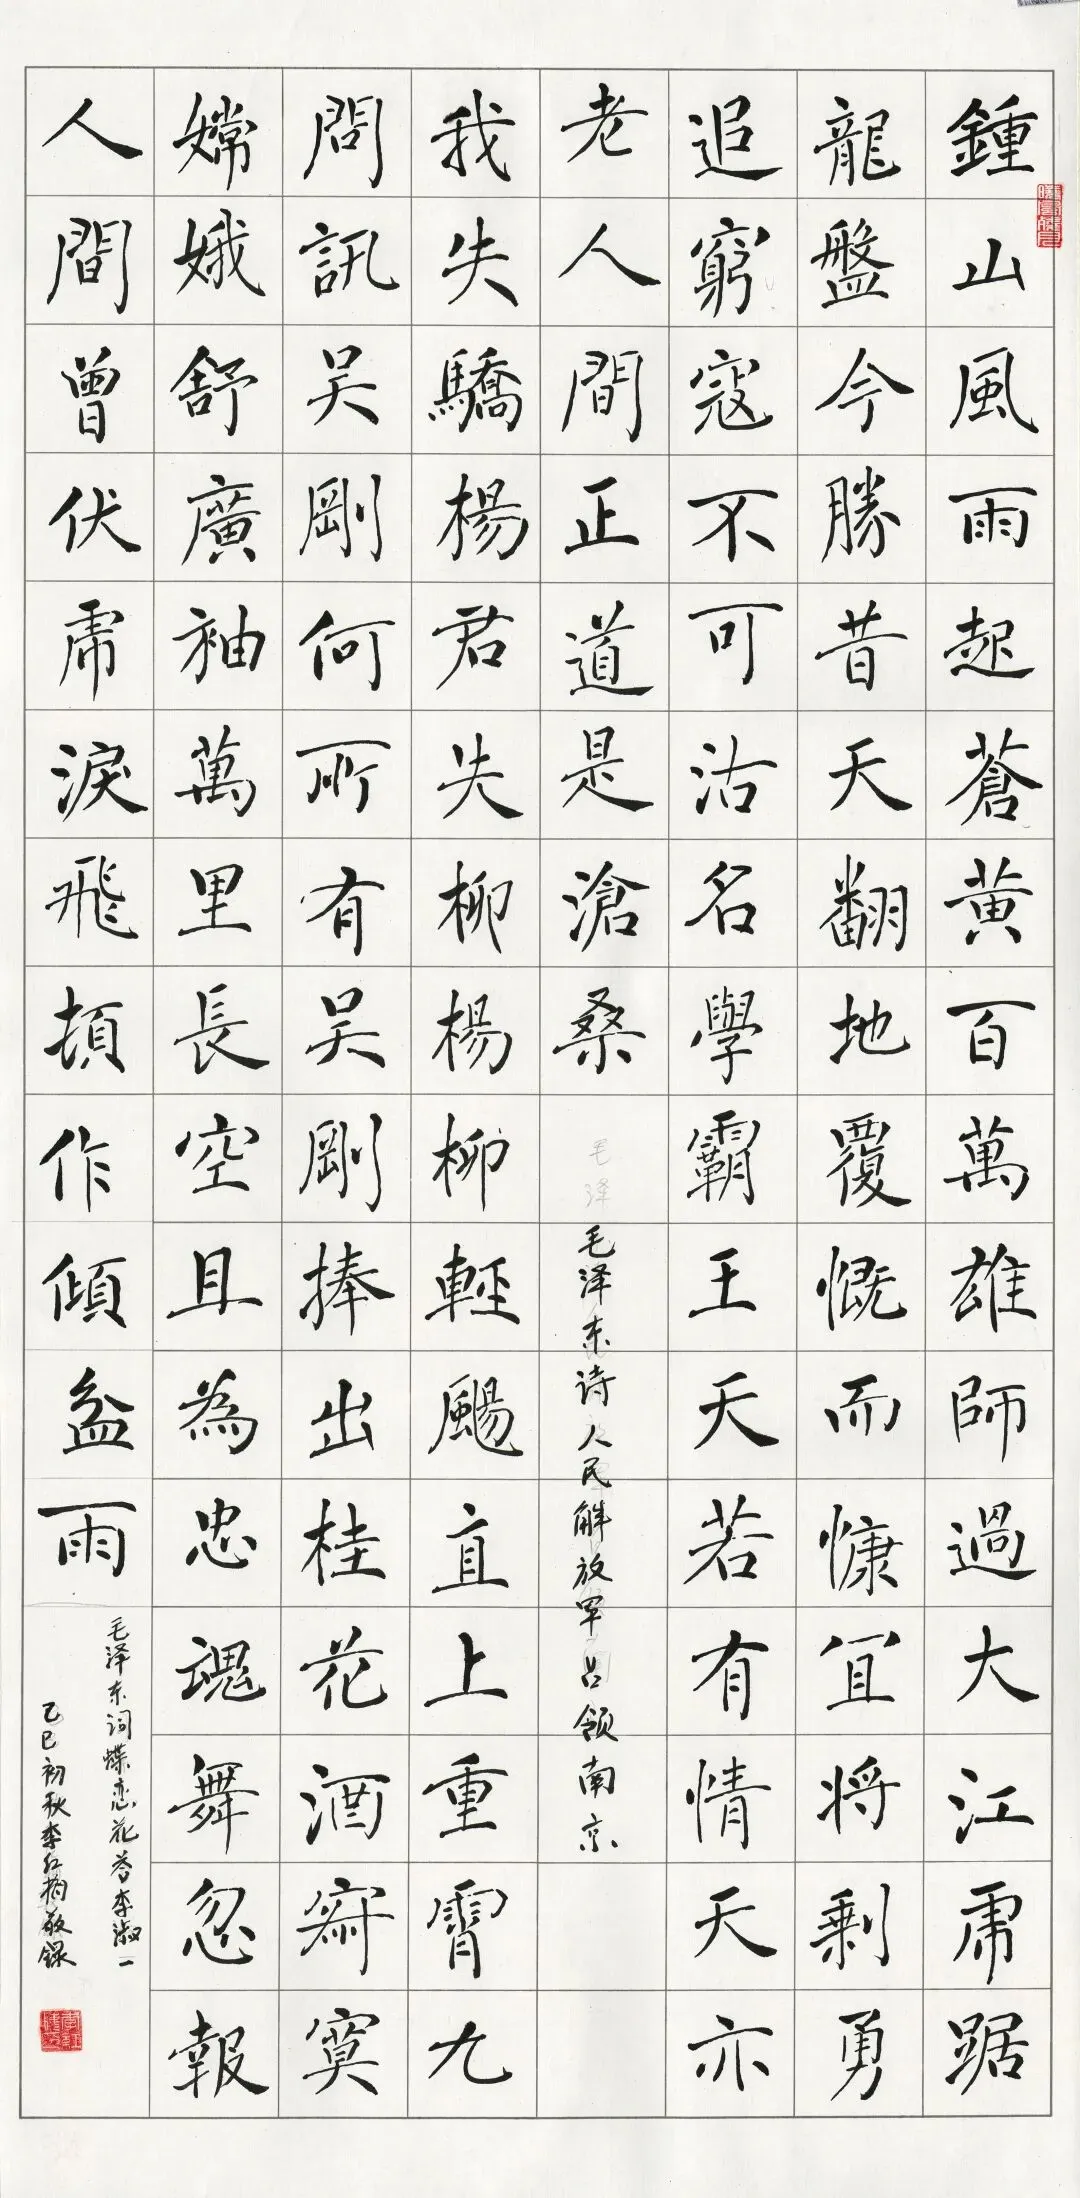 鍾山風雨起蒼黄百萬雄師過大江虎踞
龍盤今勝昔天翻地覆慨而慷宜将剩勇
追窮寇不可沽名學霸王天若有情天亦
老人間正道是滄桑
毛泽
毛泽东诗人民解放军占领南京
我失驕楊君失柳楊柳輕颺直上重霄九
問訊吴剛何所有吴剛捧出桂花酒寂寞
嫦娥舒廣袖萬里長空且為忠魂舞忽報
人間曾伏虎淚飛頓作傾盆雨
毛泽东词蝶恋花答李淑一
乙巳初秋李红敬録